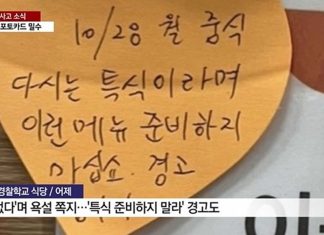 사고 소식
포토카드 밀수
10/28 월 중식
다시는 특식이라며
이런 메뉴 준비하지
마십쇼. 경고
경찰학교 식당 / 어제
없다'며 욕설 쪽지…'특식 준비하지 말라' 경고도